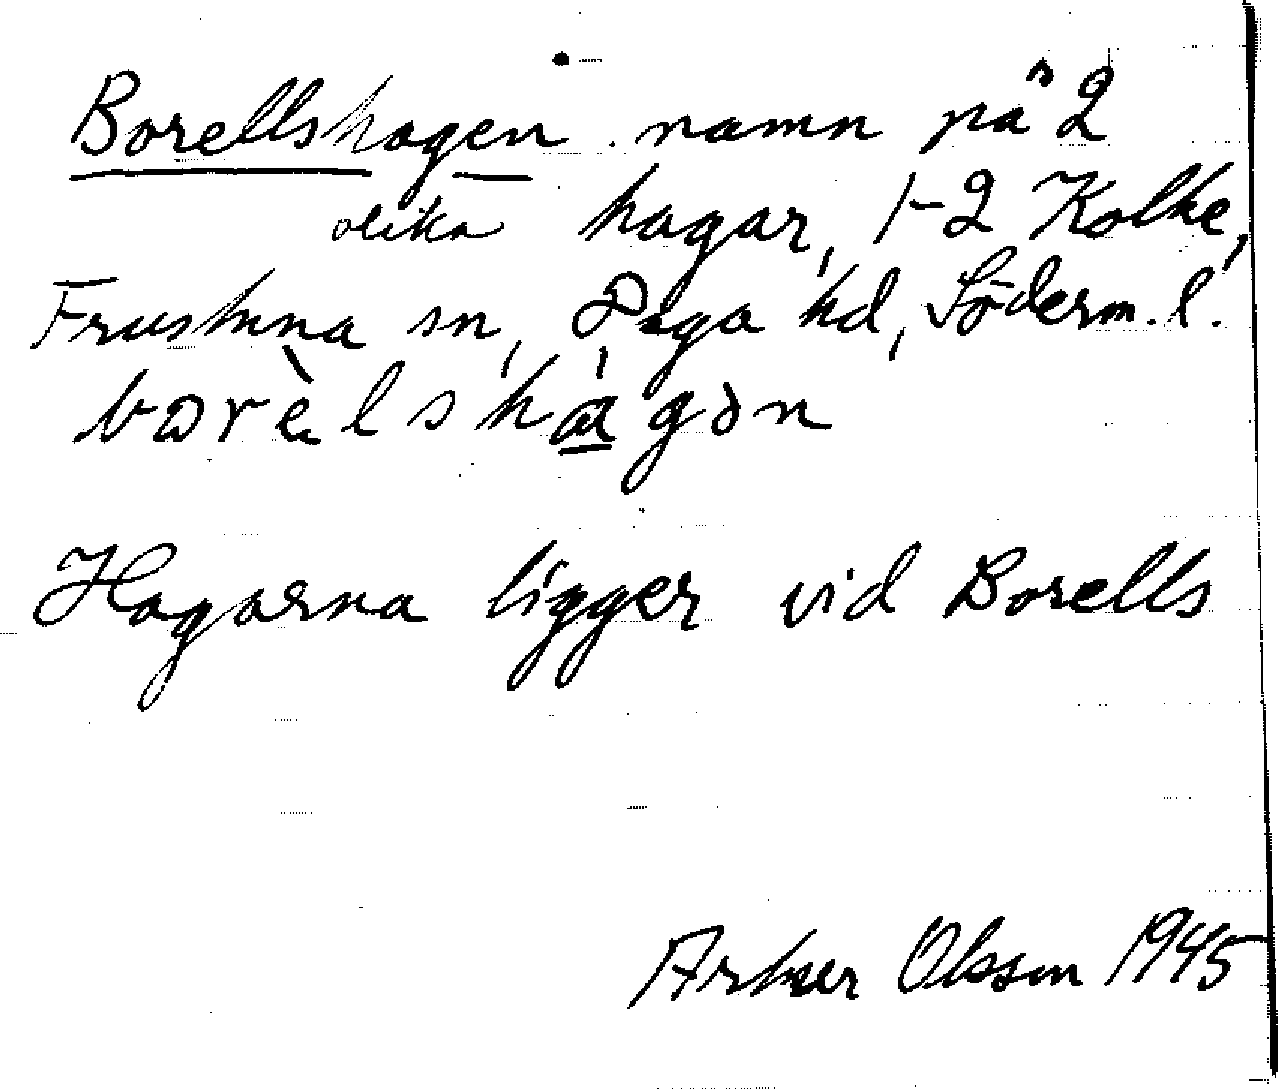 Borellshagen namn på 2
olika hagar, 1-2 Kolke,
Frustuna sn, Daga hd, Söderm. l.
Hagarna ligger vid Borells
Arthur Olsson 1945